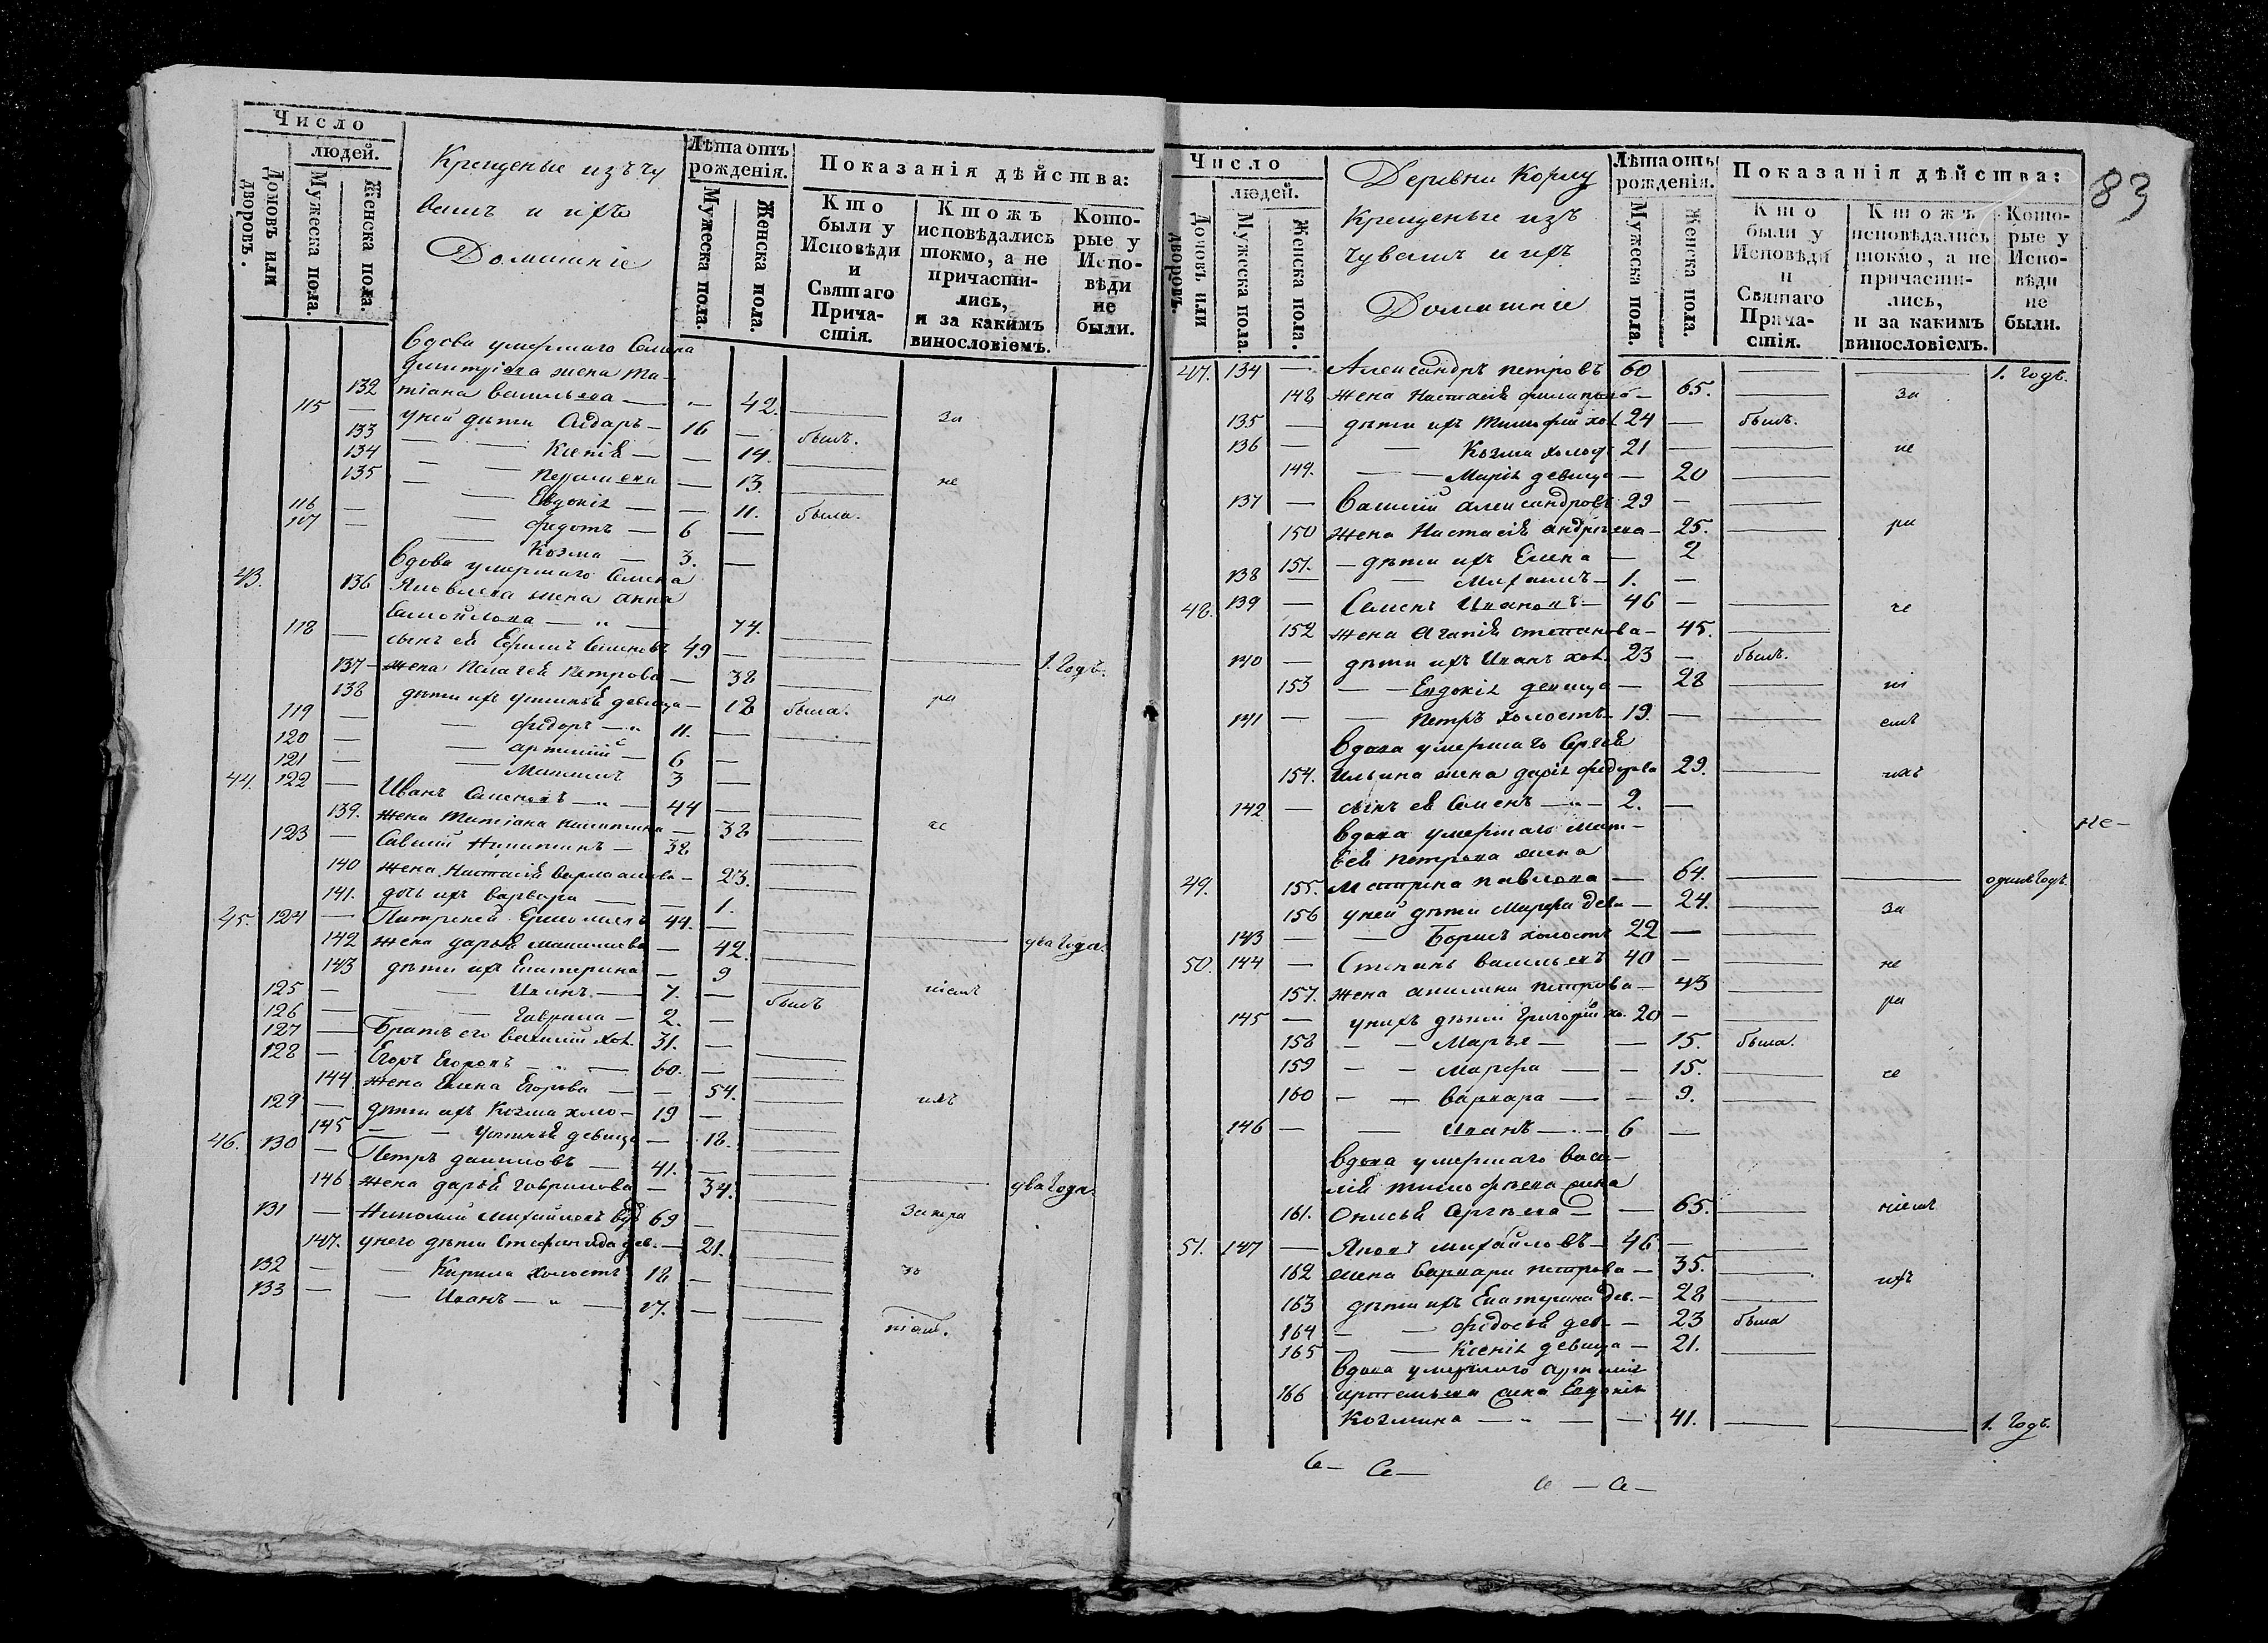 Число
людей.
Домовъ или дворовъ.
Мужеска пола.
Женска пола.
Крещеные изъ чу
вашъ и ихъ
Домашніе
Лѣта отъ рожденія.
Мужеска пола.
Женска пола.
Показанія дѣйства:
Кто были у Исповѣди и Святаго Прича-стія.
Ктожъ исповѣдались токмо, а не причасти-лись, и за какимъ винословіемъ.
Кото-рые у Испо-вѣди не были.
Вдова умершаго Семена
Димитріева жена Та-
132 тіана Васильева — — 42.
115 — у ней дѣти Сидаръ — 16 — былъ. за
133 — — Ксенія — — 14.
134 — — — 13. не
135 — — Евдокія — — 11. была.
116 — — Федотъ — 6 —
117 — — Козма — 3. —
Вдова умершаго Семена
43. 136 Яковлева жена Анна
Самойлова — 74.
118 — сынъ ея Ефимъ Семеновъ 49 — 1. годъ.
137 — жена Пелагея Петрова — 38
138 дѣти ихъ Устинья девица — 18 была. ра
119 — — Федоръ — 11. —
120 — — Артемій — 6 —
121 — — 3 —
44. 122 — Иванъ Семеновъ — 44 —
139. жена Татіана Никитина — 38 че
123 — Савелій Никитинъ — 38
140 жена Настасія — 23.
141. дочь ихъ Варвара — — 1.
45. 124 — 44. — два года.
142 жена Дарья — 42.
143 дѣти ихъ Екатерина — 9
125 — — Иванъ — 7. — былъ ніемъ
126 — — Гаврила — 2. —
127 — братъ его Василій хол. 31. —
128 — Егоръ Егоровъ — 60. —
144 жена Елена Егорова — — 54.
129 — дѣти ихъ Козма холо — 19 — ихъ
145 — — Устинья девица — 18.
46. 130 — Петръ Даниловъ — 41. — два года.
146 жена Дарья Гаврилова — 34.
131 — Николай Михайловъ вд 69 —
147. у него дѣти Стефанида дев. — 21.
132 — — Кирила холостъ 18 —
133 — — Иванъ — 17. —
ніем.
83
Число
людей.
Домовъ или дворовъ.
Мужеска пола.
Женска пола.
Деревни Корму
Крещеные изъ
чувашъ и ихъ
Домашніе
Лѣта отъ рожденія.
Мужеска пола.
Женска пола.
Показанія дѣйства:
Кто были у Исповѣди и Святаго Прича-стія.
Ктожъ исповѣдались токмо, а не причасти-лись, и за какимъ винословіемъ.
Кото-рые у Испо-вѣди не были.
47. 134 — Александръ Петровъ 60 — — 1. годъ.
148 жена Настасія — 65. — за
135 — дѣти ихъ Тимофей хол 24 — былъ.
136 — — Козма холос 21 — — не
149. — — Марія девица — 20 —
137 — Василій Александровъ 29 —
150 жена Настасія Андреева — 25. — ра
151. — дѣти ихъ Елена — 2
138 — — Михаилъ — 1. —
48. 139 — Семенъ Ивановъ — 46 — — че
152 жена Агапія Степанова — 45. —
140 — дѣти ихъ Иванъ хол. 23 — былъ.
153 — — Евдокія девица — 28 — ні
141 — — Петръ холостъ — 19. — — емъ
вдова умершаго Сергея
154. Ильина жена Дарія Федорова 29. — ихъ
142 — сынъ ея Семенъ — 2. —
вдова умершаго Мат-
вея Петрова жена
не —
49. 155. Матрена Павлова — 64. — — одинъ годъ.
156 у ней дѣти Марфа дев. — 24. — за
143 — — Борисъ холостъ 22 — —
50. 144 — Степанъ Васильевъ 40 — — не
157. жена Акилина Петрова — 43 — ра
145 — у нихъ дѣти Григорій хо. 20 — —
158 — — Марья — — 15. была.
159 — — Марфа — — 15. — че
160 — — Варвара — — 9. —
146 — — Иванъ — 6 —
вдова умершаго Васи-
лія Тимофеева жена
161. Онисья Сергеева — — 65. — ніемъ
51. 147 — Яковъ Михайловъ — 46 — —
162 жена Варвара Петрова — 35. — ихъ
163 дѣти ихъ Екатерина дев. — 28 —
164 — — Федосья дев — — 23 была
165 — — Ксенія девица — 21. —
вдова умершаго Артемія
166 Артемьева жена Евдокія
Козмина — — 41. — — 1. годъ.